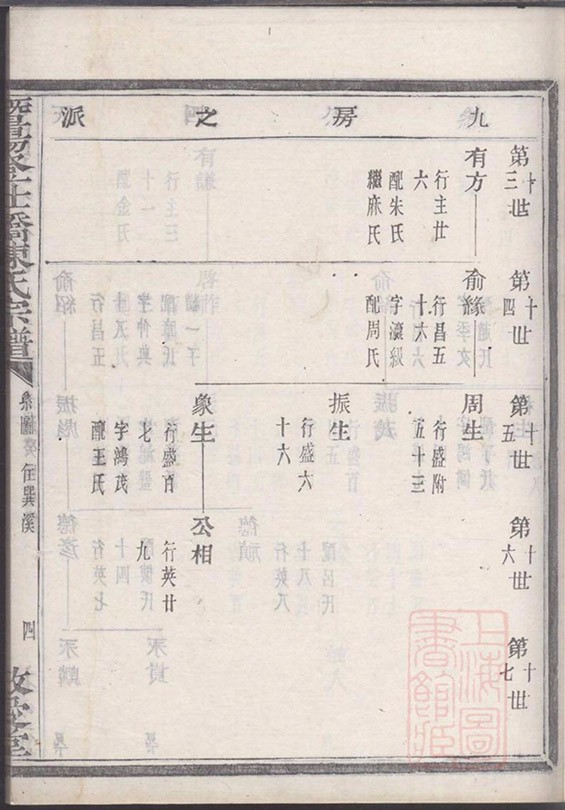 九房之派
第十三世
第十四世
第十五世
第十六世
第十七世
有方
行主廿
六
配朱氏
繼麻氏
俞緣
行昌五
十六
字瀛級
配周氏
周生
行盛附
五十三
振生
行盛六
十六
象生
行盛百
七
字鴻茂
配王氏
公相
行英廿
九
陳氏宗譜
四
上海圖書館藏